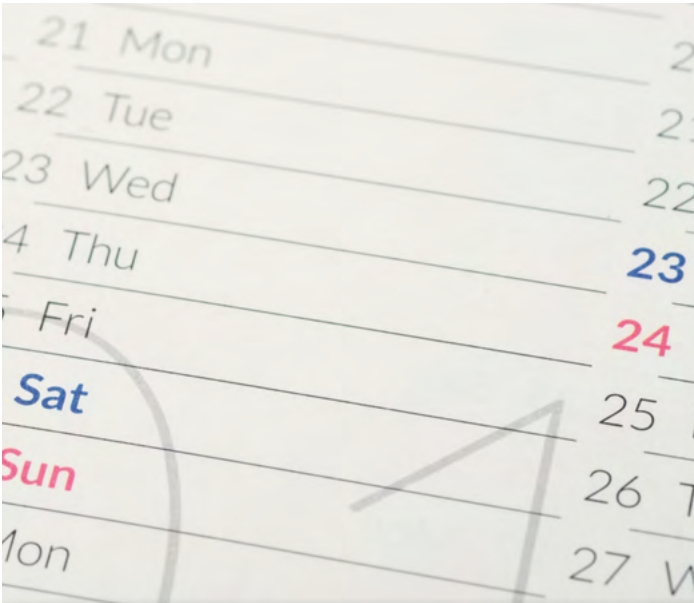 21 Mon
22 Tue
23 Wed
4 Thu
Fri
Sat
Sun
Mon
2
21
22
23
24
25
26 T
27 W
1